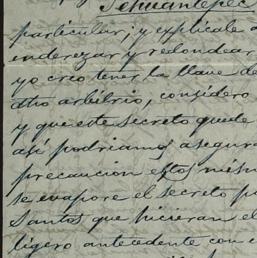 Tehuantepec
particular; y explicale a
enderezar y redondear
yo creo tener la llave de
dho arbitrio, considero
y que este secreto quede
así podriamos asegura
precaucion estos mism
se evapore el secreto p
Santos que hicieran el
ligero antecedente con e